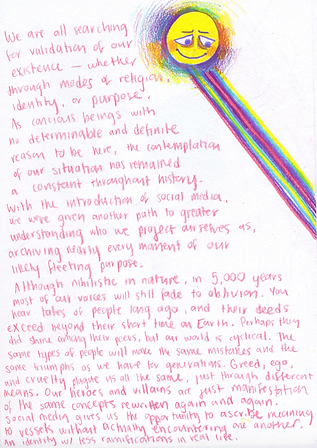 We are all searching
for validation of our
existence — whether
through modes of religion,
identity, or purpose.
As concious beings with
no determinable and definite
reason to be here, the contemplation
of our situation has remained
a constant throughout history.
With the introduction of social media,
we were given another path to greater
understanding who we project ourselves as,
archiving nearly every moment of our
likely fleeting purpose.
Although nihilistic in nature, in 5,000 years
most of our voices will still fade to oblivion. You
hear tales of people long ago, and their deeds
exceed beyond their short time on Earth. Perhaps they
did shine among their peers, but our world is cyclical. The
same types of people will make the same mistakes and the
same triumphs as we have for generations. Greed, ego,
and cruelty plague us all the same, just through different
means. Our heroes and villains are just manifestation
of the same concepts rewritten again and again.
Social media gives us the opportunity to ascribe meaning
to vessels without actually encountering one another.
An identity w/ less ramifications in real life.